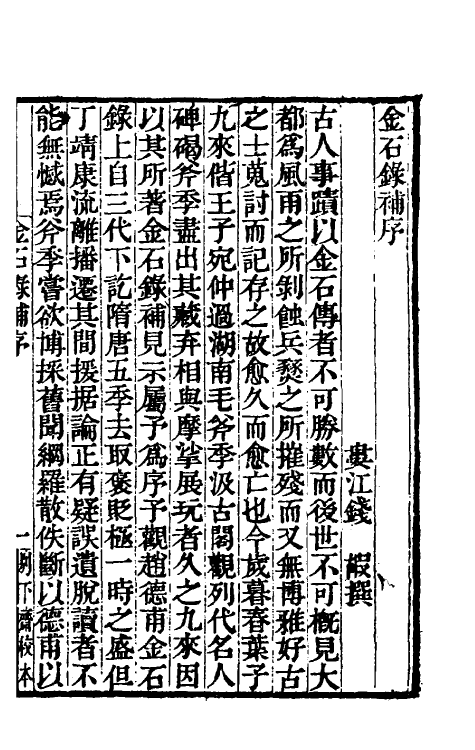 金石錄補序
婁江錢 嘏撰
古人事蹟以金石傳者不可勝數而後世不可槪見大
都爲風雨之所剝蝕兵燹之所摧殘而又無博雅好古
之士蒐討而記存之故愈久而愈亡也今歲暮春葉子
九來偕王子宛仲過湖南毛斧季汲古閣觀列代名人
碑碣斧季盡出其藏弆相與摩挲展玩者久之九來因
以其所著金石錄補見示屬予爲序予觀趙德甫金石
錄上自三代下訖隋唐五季去取褒貶極一時之盛但
丁靖康流離播遷其間援据論正有疑誤遺脫讀者不
能無憾焉斧季嘗欲博採舊聞網羅散佚斷以德甫以
金石錄補序 一 別下齋校本